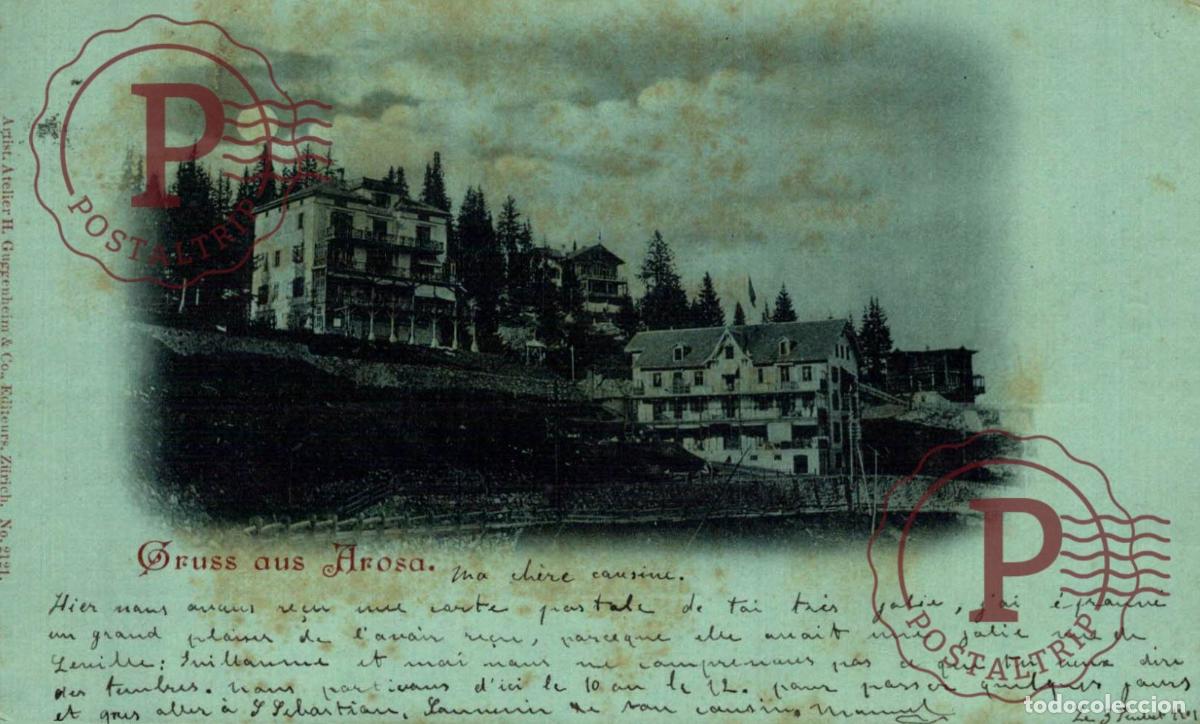 P
POSTALTRIP
Artist. Atelier H. Guggenheim & Co., Editeurs, Zürich. No. 2121.
Gruss aus Arosa.
Ma chère cousine.
Hier nous avons reçu une carte postale de toi très jolie, j'ai éprouvé
un grand plaisir de l'avoir reçu, parceque elle avait une jolie vue de
Seville; Guillaume et moi nous ne comprenons pas ce que tu veux dire
des timbres. Nous partirons d'ici le 10 ou le 12. pour passer quelques jours
et puis aller à S Sebastian, Souvenir de ton cousin Manuel
P
POSTALTRIP
todocoleccion